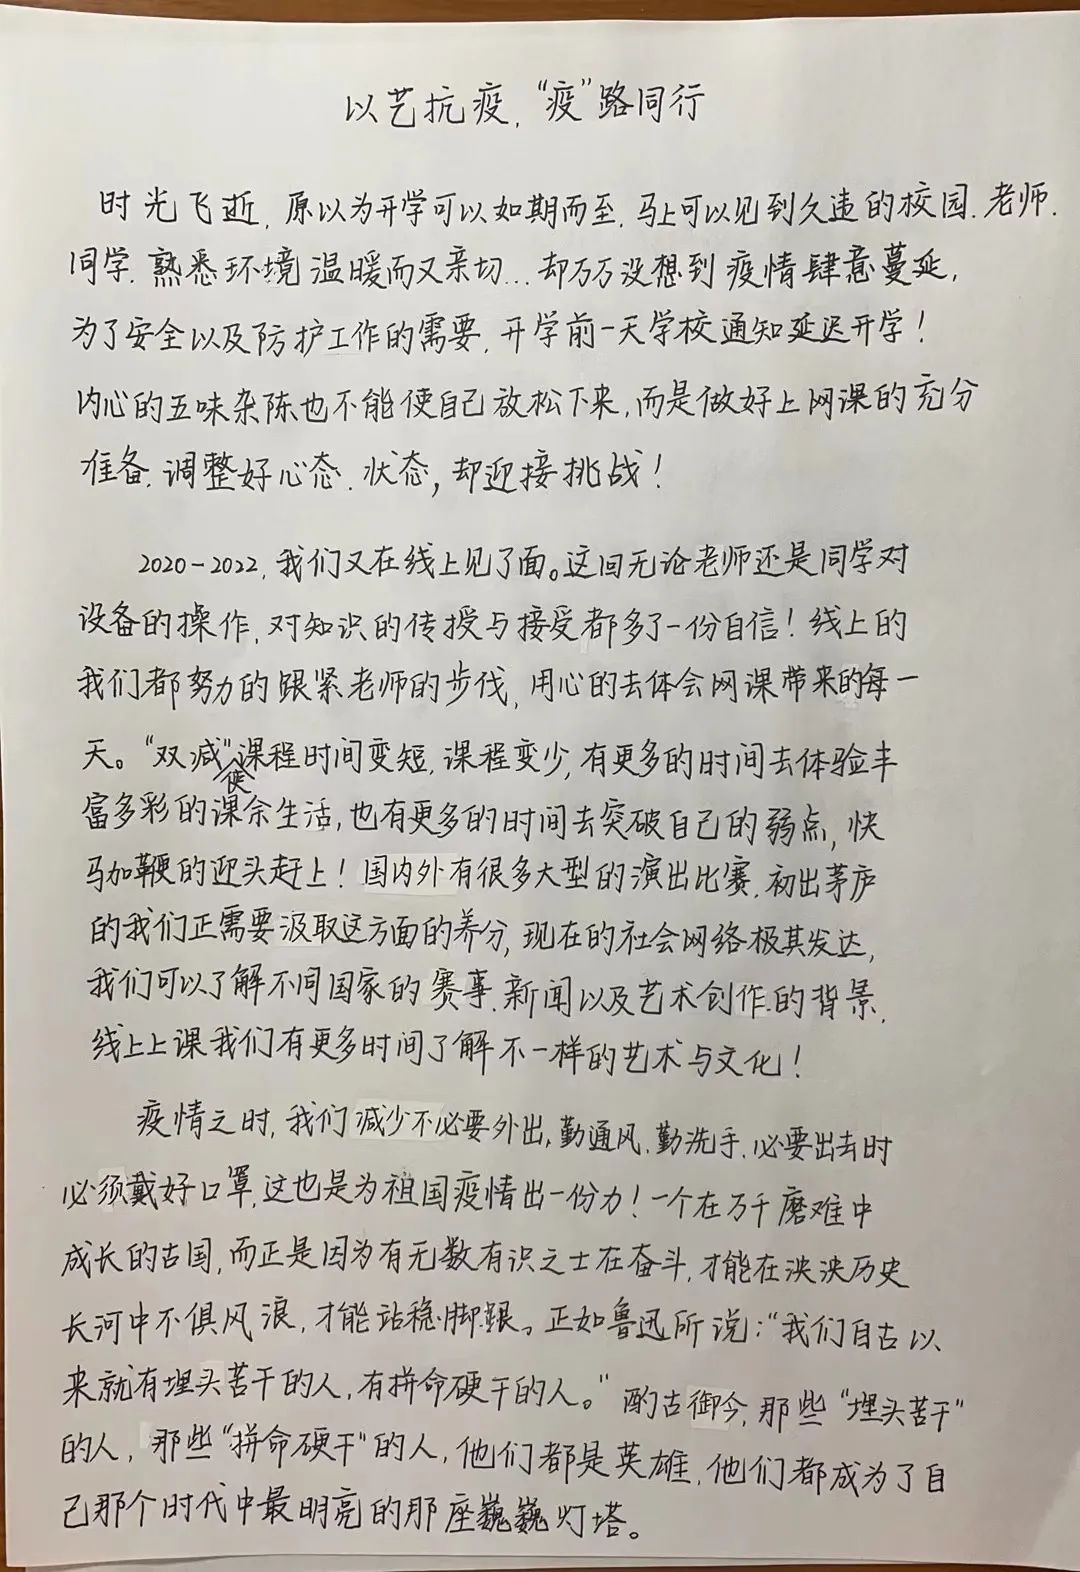 以艺抗疫,“疫”路同行
时光飞逝,原以为开学可以如期而至,马上可以见到久违的校园.老师.
同学.熟悉环境温暖而又亲切...却万万没想到疫情肆意蔓延,
为了安全以及防护工作的需要,开学前一天学校通知延迟开学!
内心的五味杂陈也不能使自己放松下来,而是做好上网课的充分
准备.调整好心态.状态,却迎接挑战!
2020-2022,我们又在线上见了面。这回无论老师还是同学对
设备的操作,对知识的传授与接受都多了一份自信!线上的
我们都努力的跟紧老师的步伐,用心的去体会网课带来的每一
天。“双减”使课程时间变短,课程变少,有更多的时间去体验丰
富多彩的课余生活,也有更多的时间去突破自己的弱点,快
马加鞭的迎头赶上!国内外有很多大型的演出比赛,初出茅庐
的我们正需要汲取这方面的养分,现在的社会网络极其发达,
我们可以了解不同国家的赛事.新闻以及艺术创作的背景,
线上上课我们有更多时间了解不一样的艺术与文化!
疫情之时,我们减少不必要外出,勤通风.勤洗手.必要出去时
必须戴好口罩,这也是为祖国疫情出一份力!一个在万千磨难中
成长的古国,而正是因为有无数有识之士在奋斗,才能在泱泱历史
长河中不俱风浪,才能站稳脚跟。正如鲁迅所说:“我们自古以
来就有埋头苦干的人,有拼命硬干的人。”酌古御今,那些“埋头苦干”
的人,那些“拼命硬干”的人,他们都是英雄,他们都成为了自
己那个时代中最明亮的那座巍巍灯塔。